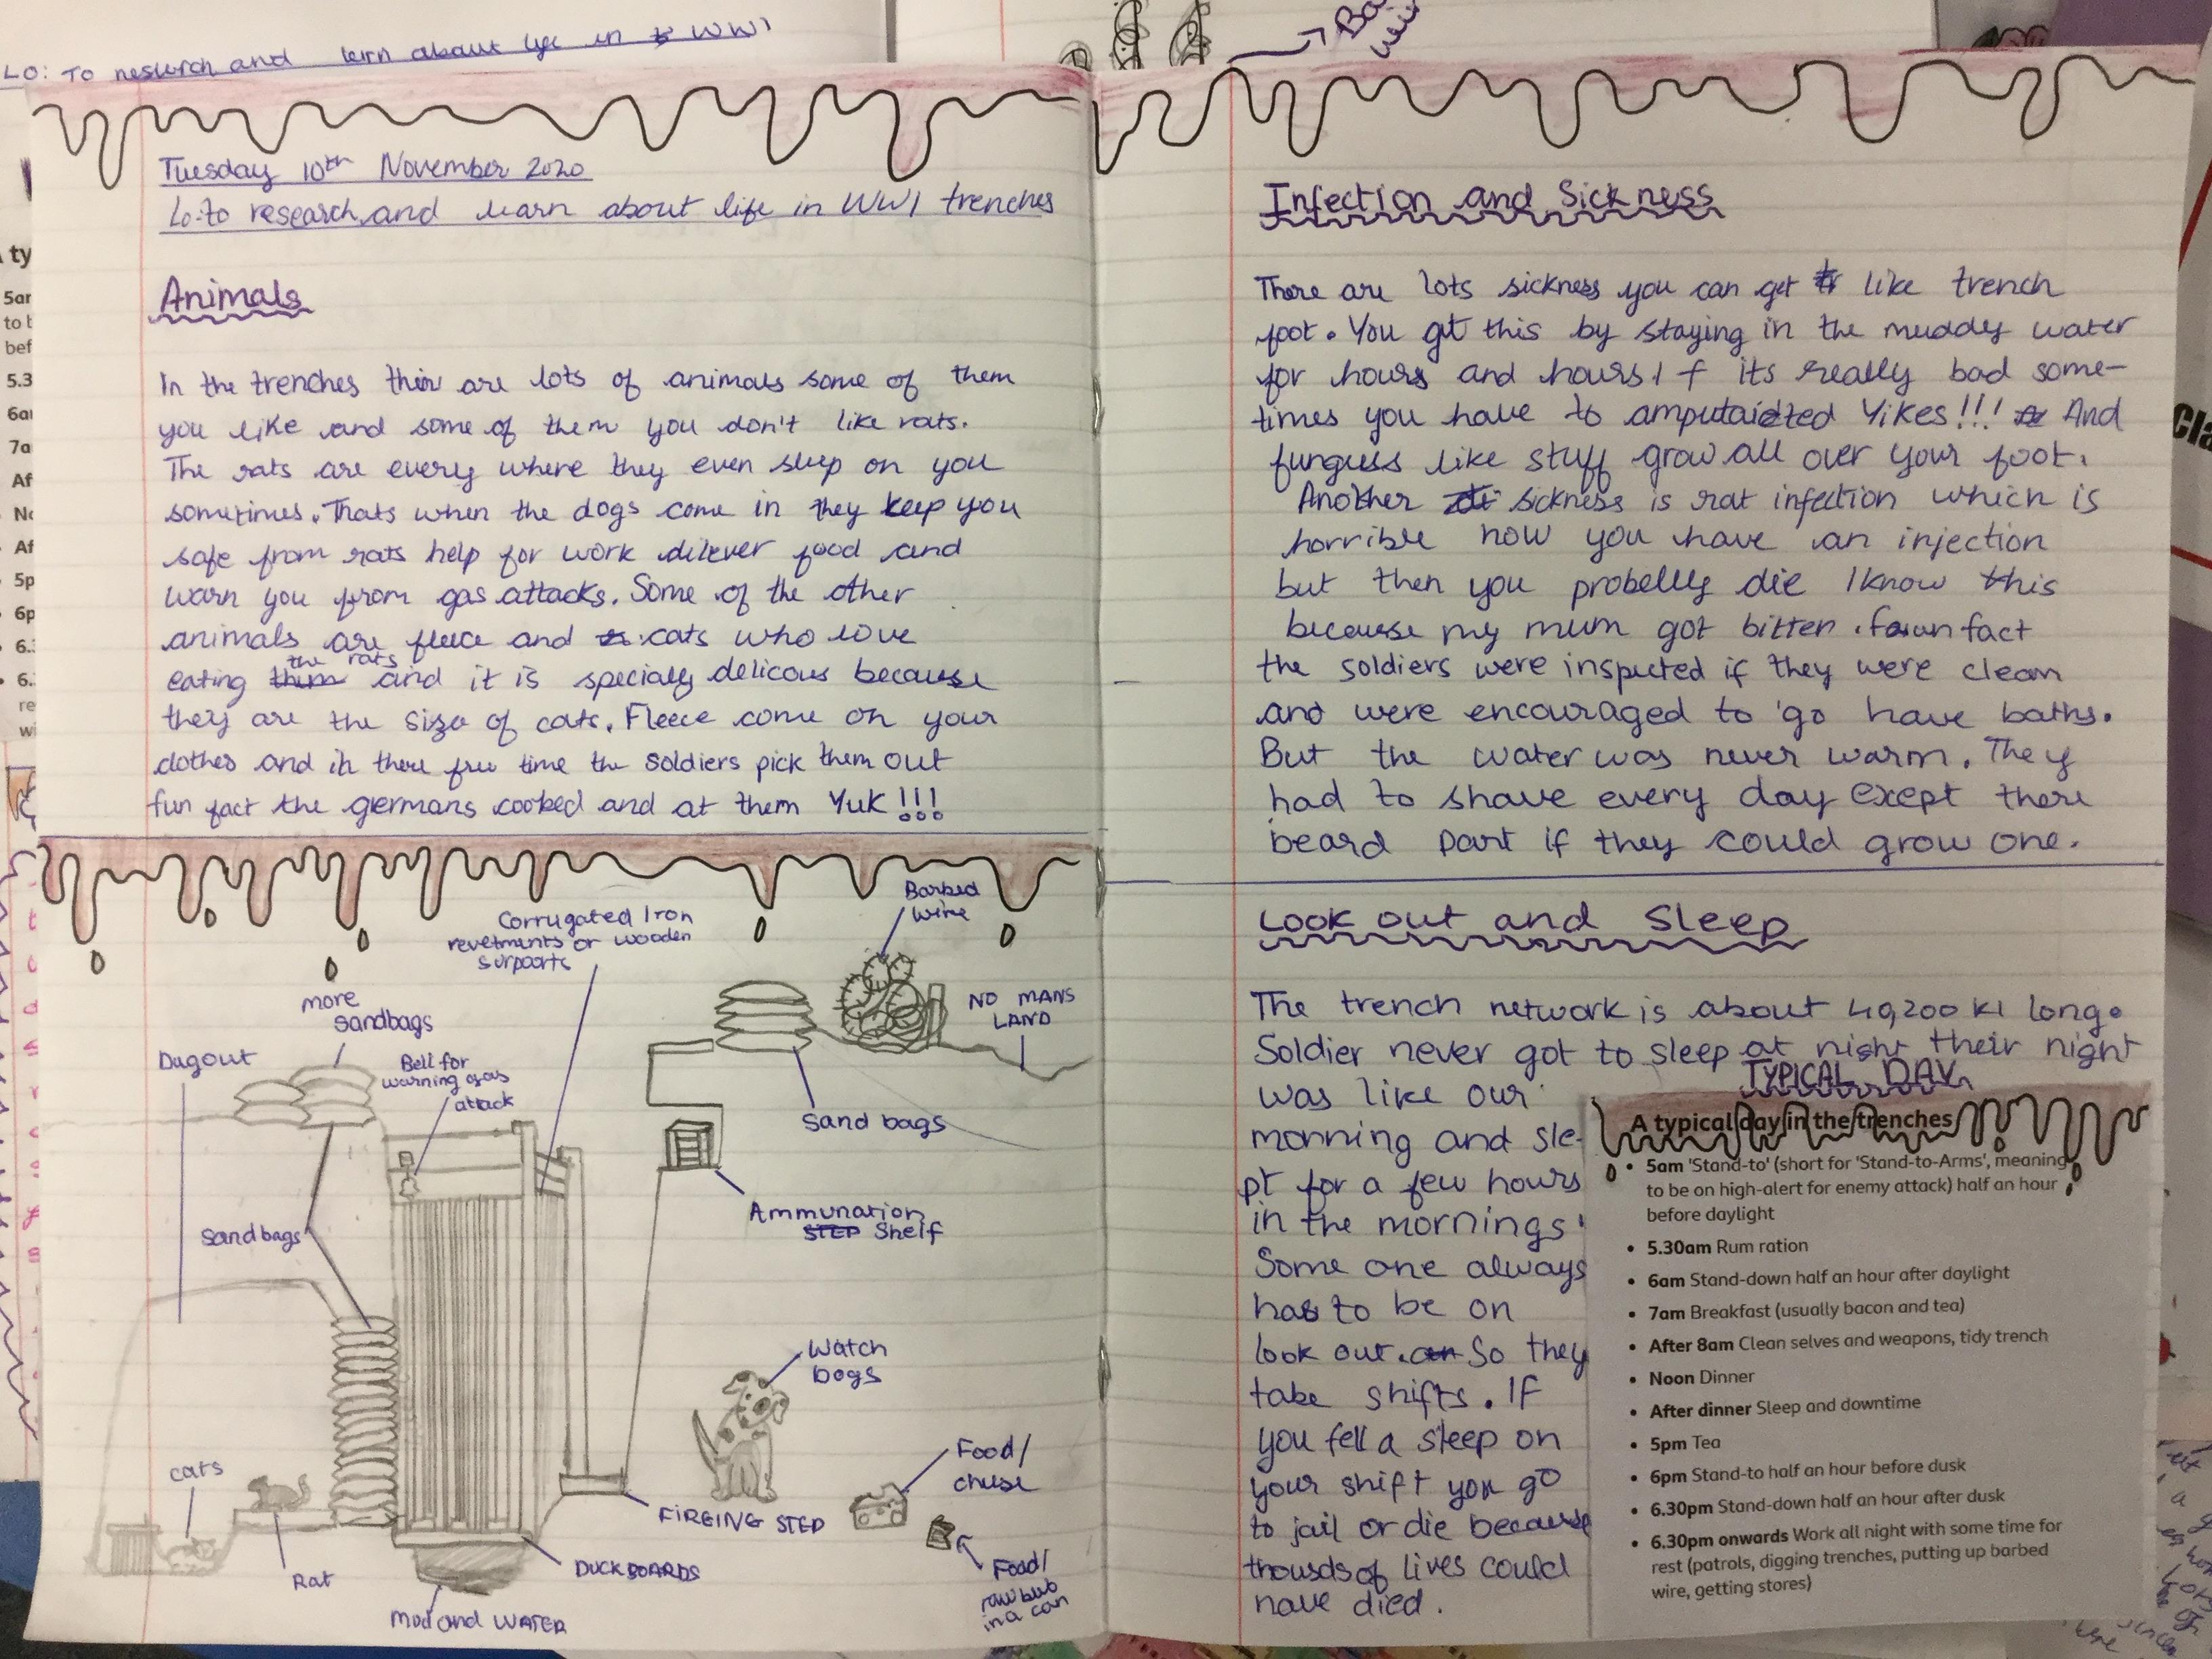 LO: To reserch and lern about life in WW1
Tuesday 10th November 2020
Lo: to research and learn about life in WW1 trenches
Animals
In the trenches thier are lots of animals some of them
you like and some of them you don't like rats.
The rats are every where they even sleep on you
sometimes. Thats when the dogs come in they keep you
safe from rats help for work dilever food and
warn you from gas attacks. Some of the other
animals are fleece and cats who love
eating the rats and it is specialy delicous because
they are the size of cats. Fleece come on your
clothes and in there free time the soldiers pick them out
fun fact the germans cooked and at them Yuk!!!
Corrugated Iron
revetments or wooden
surpoarts
Barbed
wire
more
sandbags
NO MANS
LAND
Dugout
Bell for
warning gas
attack
Sand bags
Sandbags
Ammunation
STEP Shelf
Watch
Dogs
cats
Food/
cheese
FIREING STEP
Rat
DUCKBOARDS
Food/
in a can
Mud and WATER
Infection and Sickness
There are lots sickness you can get like trench
foot. You get this by staying in the muddy water
for hours and hours If its really bad some-
times you have to amputaidted Yikes!!! And
funguss like stuff grow all over your foot.
Another sickness is rat infection which is
horrible now you have an injection
but then you probelly die I know this
because my mum got bitten. fun fact
the soldiers were inspected if they were clean
and were encouraged to go have baths.
But the water was never warm. They
had to shave every day exept there
beard part if they could grow one.
Look out and Sleep
The trench network is about 40,200 kl long.
Soldier never got to sleep at night their night
was like our
monning and sle-
pt for a few hours
in the mornings
Some one always
has to be on
look out. So they
take shifts. If
you fell a sleep on
your shift you go
to jail or die because
thousds of lives could
have died.
TYPICAL DAY
A typical day in the trenches
• 5am 'Stand-to' (short for 'Stand-to-Arms', meaning
to be on high-alert for enemy attack) half an hour
before daylight
• 5.30am Rum ration
• 6am Stand-down half an hour after daylight
• 7am Breakfast (usually bacon and tea)
• After 8am Clean selves and weapons, tidy trench
• Noon Dinner
• After dinner Sleep and downtime
• 5pm Tea
• 6pm Stand-to half an hour before dusk
• 6.30pm Stand-down half an hour after dusk
• 6.30pm onwards Work all night with some time for
rest (patrols, digging trenches, putting up barbed
wire, getting stores)